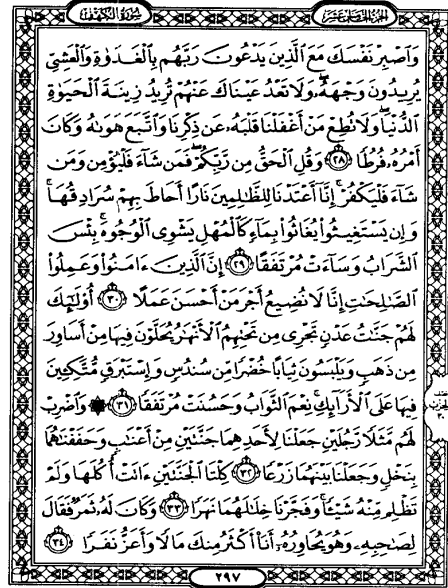 الجزء الخامس عشر
سورة الكهف
وَٱصۡبِرۡ نَفۡسَكَ مَعَ ٱلَّذِينَ يَدۡعُونَ رَبَّهُم بِٱلۡغَدَوٰةِ وَٱلۡعَشِىِّ
يُرِيدُونَ وَجۡهَهُۥۖ وَلَا تَعۡدُ عَيۡنَاكَ عَنۡهُمۡ تُرِيدُ زِينَةَ ٱلۡحَيَوٰةِ
ٱلدُّنۡيَاۖ وَلَا تُطِعۡ مَنۡ أَغۡفَلۡنَا قَلۡبَهُۥ عَن ذِكۡرِنَا وَٱتَّبَعَ هَوَىٰهُ وَكَانَ
أَمۡرُهُۥ فُرُطًا ٢٨ وَقُلِ ٱلۡحَقُّ مِن رَّبِّكُمۡۖ فَمَن شَآءَ فَلۡيُؤۡمِن وَمَن
شَآءَ فَلۡيَكۡفُرۡۚ إِنَّآ أَعۡتَدۡنَا لِلظَّٰلِمِينَ نَارًا أَحَاطَ بِهِمۡ سُرَادِقُهَاۚ
وَإِن يَسۡتَغِيثُواْ يُغَاثُواْ بِمَآءٖ كَٱلۡمُهۡلِ يَشۡوِى ٱلۡوُجُوهَۚ بِئۡسَ
ٱلشَّرَابُ وَسَآءَتۡ مُرۡتَفَقًا ٢٩ إِنَّ ٱلَّذِينَ ءَامَنُواْ وَعَمِلُواْ
ٱلصَّٰلِحَٰتِ إِنَّا لَا نُضِيعُ أَجۡرَ مَنۡ أَحۡسَنَ عَمَلًا ٣٠ أُوْلَٰٓئِكَ
لَهُمۡ جَنَّٰتُ عَدۡنٖ تَجۡرِى مِن تَحۡتِهِمُ ٱلۡأَنۡهَٰرُ يُحَلَّوۡنَ فِيهَا مِنۡ أَسَاوِرَ
مِن ذَهَبٖ وَيَلۡبَسُونَ ثِيَابًا خُضۡرٗا مِّن سُندُسٖ وَإِسۡتَبۡرَقٖ مُّتَّكِـِٔينَ
فِيهَا عَلَى ٱلۡأَرَآئِكِۚ نِعۡمَ ٱلثَّوَابُ وَحَسُنَتۡ مُرۡتَفَقٗا ٣١ ۞ وَٱضۡرِبۡ
لَهُم مَّثَلٗا رَّجُلَيۡنِ جَعَلۡنَا لِأَحَدِهِمَا جَنَّتَيۡنِ مِنۡ أَعۡنَٰبٖ وَحَفَفۡنَٰهُمَا
بِنَخۡلٖ وَجَعَلۡنَا بَيۡنَهُمَا زَرۡعٗا ٣٢ كِلۡتَا ٱلۡجَنَّتَيۡنِ ءَاتَتۡ أُكُلَهَا وَلَمۡ
تَظۡلِم مِّنۡهُ شَيۡـٔٗاۚ وَفَجَّرۡنَا خِلَٰلَهُمَا نَهَرٗا ٣٣ وَكَانَ لَهُۥ ثَمَرٞ فَقَالَ
لِصَٰحِبِهِۦ وَهُوَ يُحَاوِرُهُۥٓ أَنَا۠ أَكۡثَرُ مِنكَ مَالٗا وَأَعَزُّ نَفَرٗا ٣٤
٢٩٧